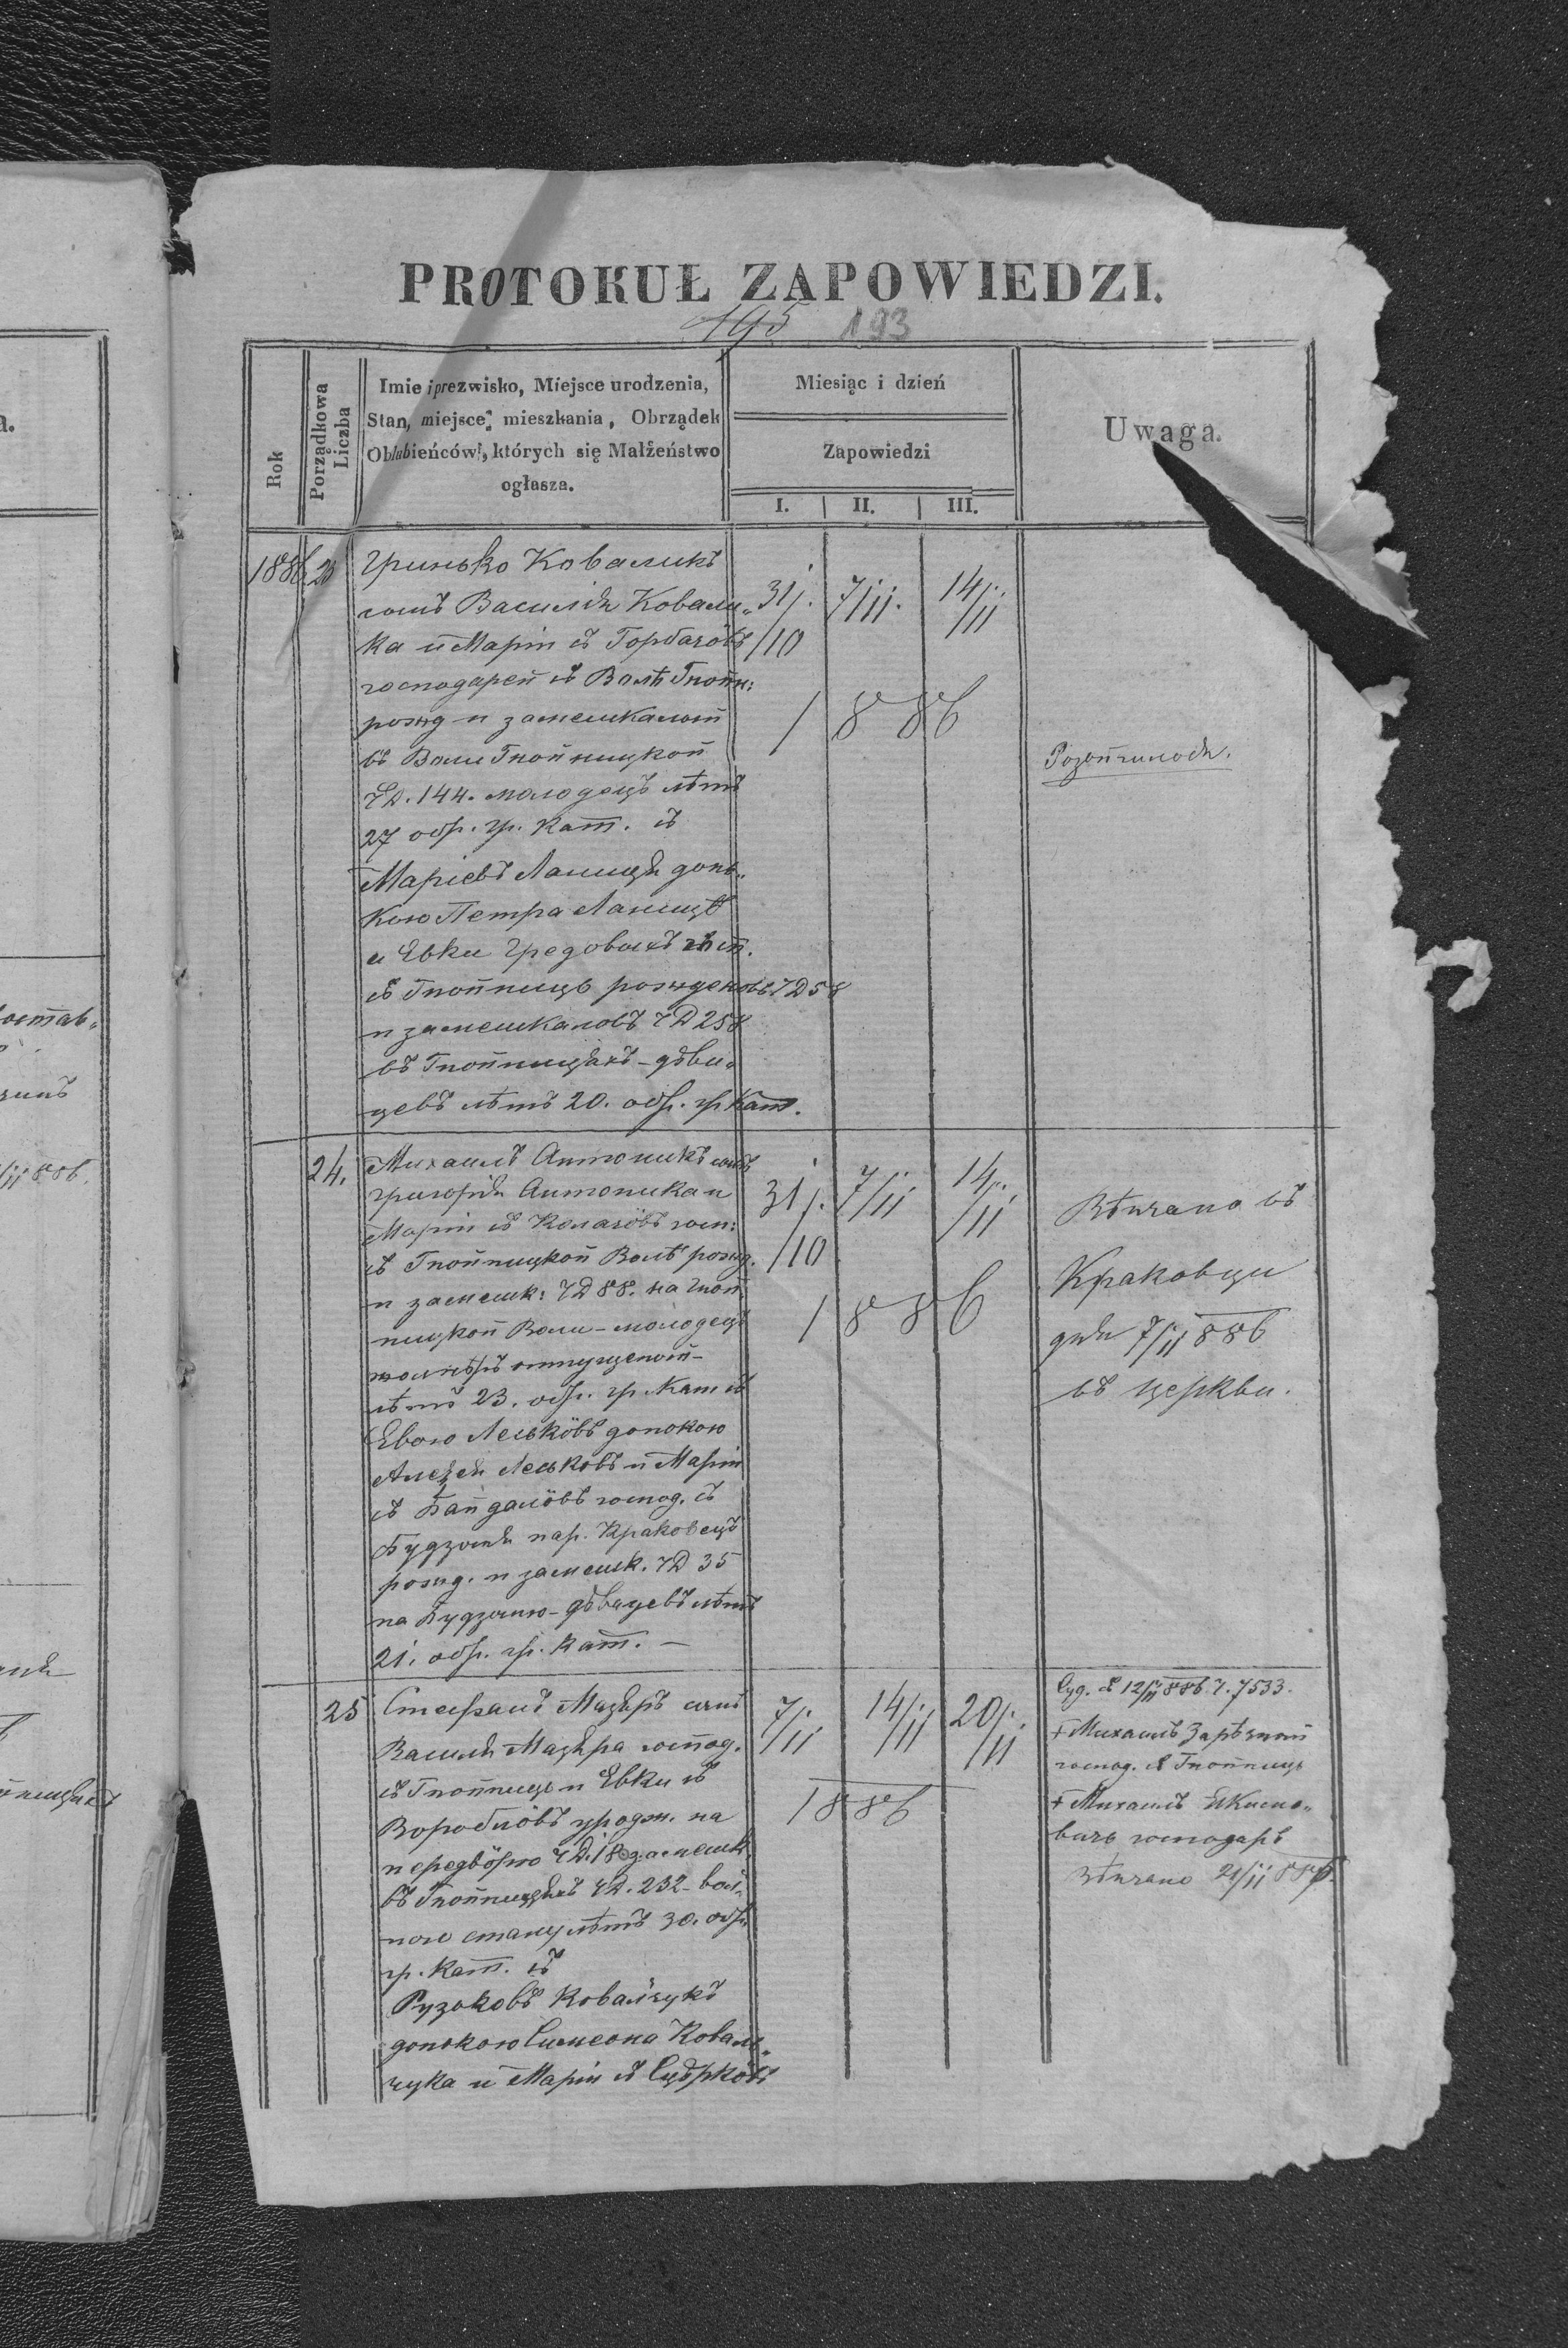 PROTOKUŁ ZAPOWIEDZI.
195 193
Rok
Porządkowa
Liczba
Imie i prezwisko, Miejsce urodzenia,
Stan, miejsce mieszkania, Obrządek
Oblubieńców, których się Małżeństwo
ogłasza.
Miesiąc i dzień
Zapowiedzi
I. II. III.
Uwaga.
1886
Гринько Коваликъ
сынъ Василія Ковали„
ка и Маріи зъ Горбачôвъ
господарей зъ Волѣ Гнойн:
рожд и замешкалый
въ Воли Гнойницкой
ЧД. 144. молодецъ лѣтъ
27 обр. гр. Кат. зъ
Маріевъ Ланица донь„
кою Петра Ланицѣ
и Евки Гредовыхъ
зъ Гнойницъ рожденовъ ЧД 58
и замешкаловъ ЧД 258
въ Гнойницяхъ - дѣви„
цевъ лѣтъ 20. обр. гр Кат.
31/10 7/11. 14/11
1886
Розойшлися.
24.
Михаилъ Антоникъ сынъ
Григорія Антоника и
Маріи зъ госп:
зъ Гнойницкой Волѣ рожд.
и замешк: ЧД 88. на Гной
ницкой Воли - молодецъ
жолнѣръ отпущеный -
лѣтъ 23. обр. гр. Кат зъ
Евою Леськôвъ донокою
Алексѣя Леськовъ и Маріи
зъ господ. зъ
Будзыня пар. Краковецъ
рожд. и замешк. ЧД 35
на Будзыню - дѣвицевъ лѣтъ
21. обр. гр. Кат. —
31/10 7/11 14/11
1886
Вѣнчано въ
Краковци
дня 7/11 886
въ церкви.
25
Стефанъ Мазяръ сынъ
Василя Мазяра господ.
зъ Гнойницъ и Евки зъ
Воробльôвъ уродж. на
передвôрю ЧД. 18 замешк.
въ Гнойницяхъ ЧД. 232 - воль
ного стану лѣтъ 30. обр.
гр. Кат. зъ
Рузьковъ Ковальчукъ
донокою Симеона Коваль„
чука и Маріи зъ
7/11 14/11 20/11
1886
Суд. д 12/11 886. Ч. 7533.
+ Михаилъ Зарѣчный
господ. зъ Гнойницъ
+ Михаилъ Якимо„
вичъ господаръ
Вѣнчано 21/11 886.